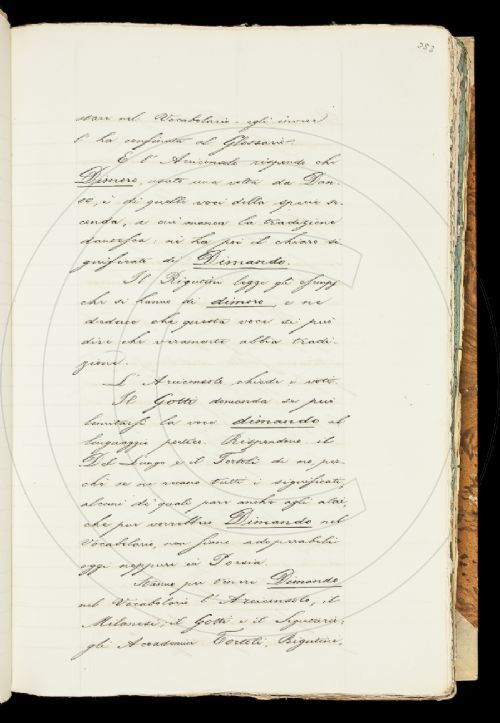 353
stare nel Vocabolario, egli invece
l' ha confinata al Glossario.
E l' Arciconsolo risponde che
Dimoro, usata una volta da Dan-
te, è di quelle voci della specie se-
conda, a cui manca la tradizione
dantesca; nè ha poi il chiaro si-
gnificato di Dimando.
Il Rigutini legge gli esempj
che si hanno di dimoro e ne
deduce che questa voce si può
dire che veramente abbia tradi-
zione.
L' Arciconsolo chiede i voti.
Il Gotti domanda se può
limitarsi la voce dimando al
linguaggio poetico. Rispondono il
Del Lungo e il Tortoli di no, per-
chè se ne recano tutti i significati,
alcuni di quali pare anche agli altri,
che pur vorrebbero Dimando nel
Vocabolario, non siano adoperabili
oggi neppure in Poesia.
Stanno per tenere Dimando
nel Vocabolario l' Arciconsolo, il
Milanesi, il Gotti e il Segretario;
gli Accademici Tortoli, Rigutini,